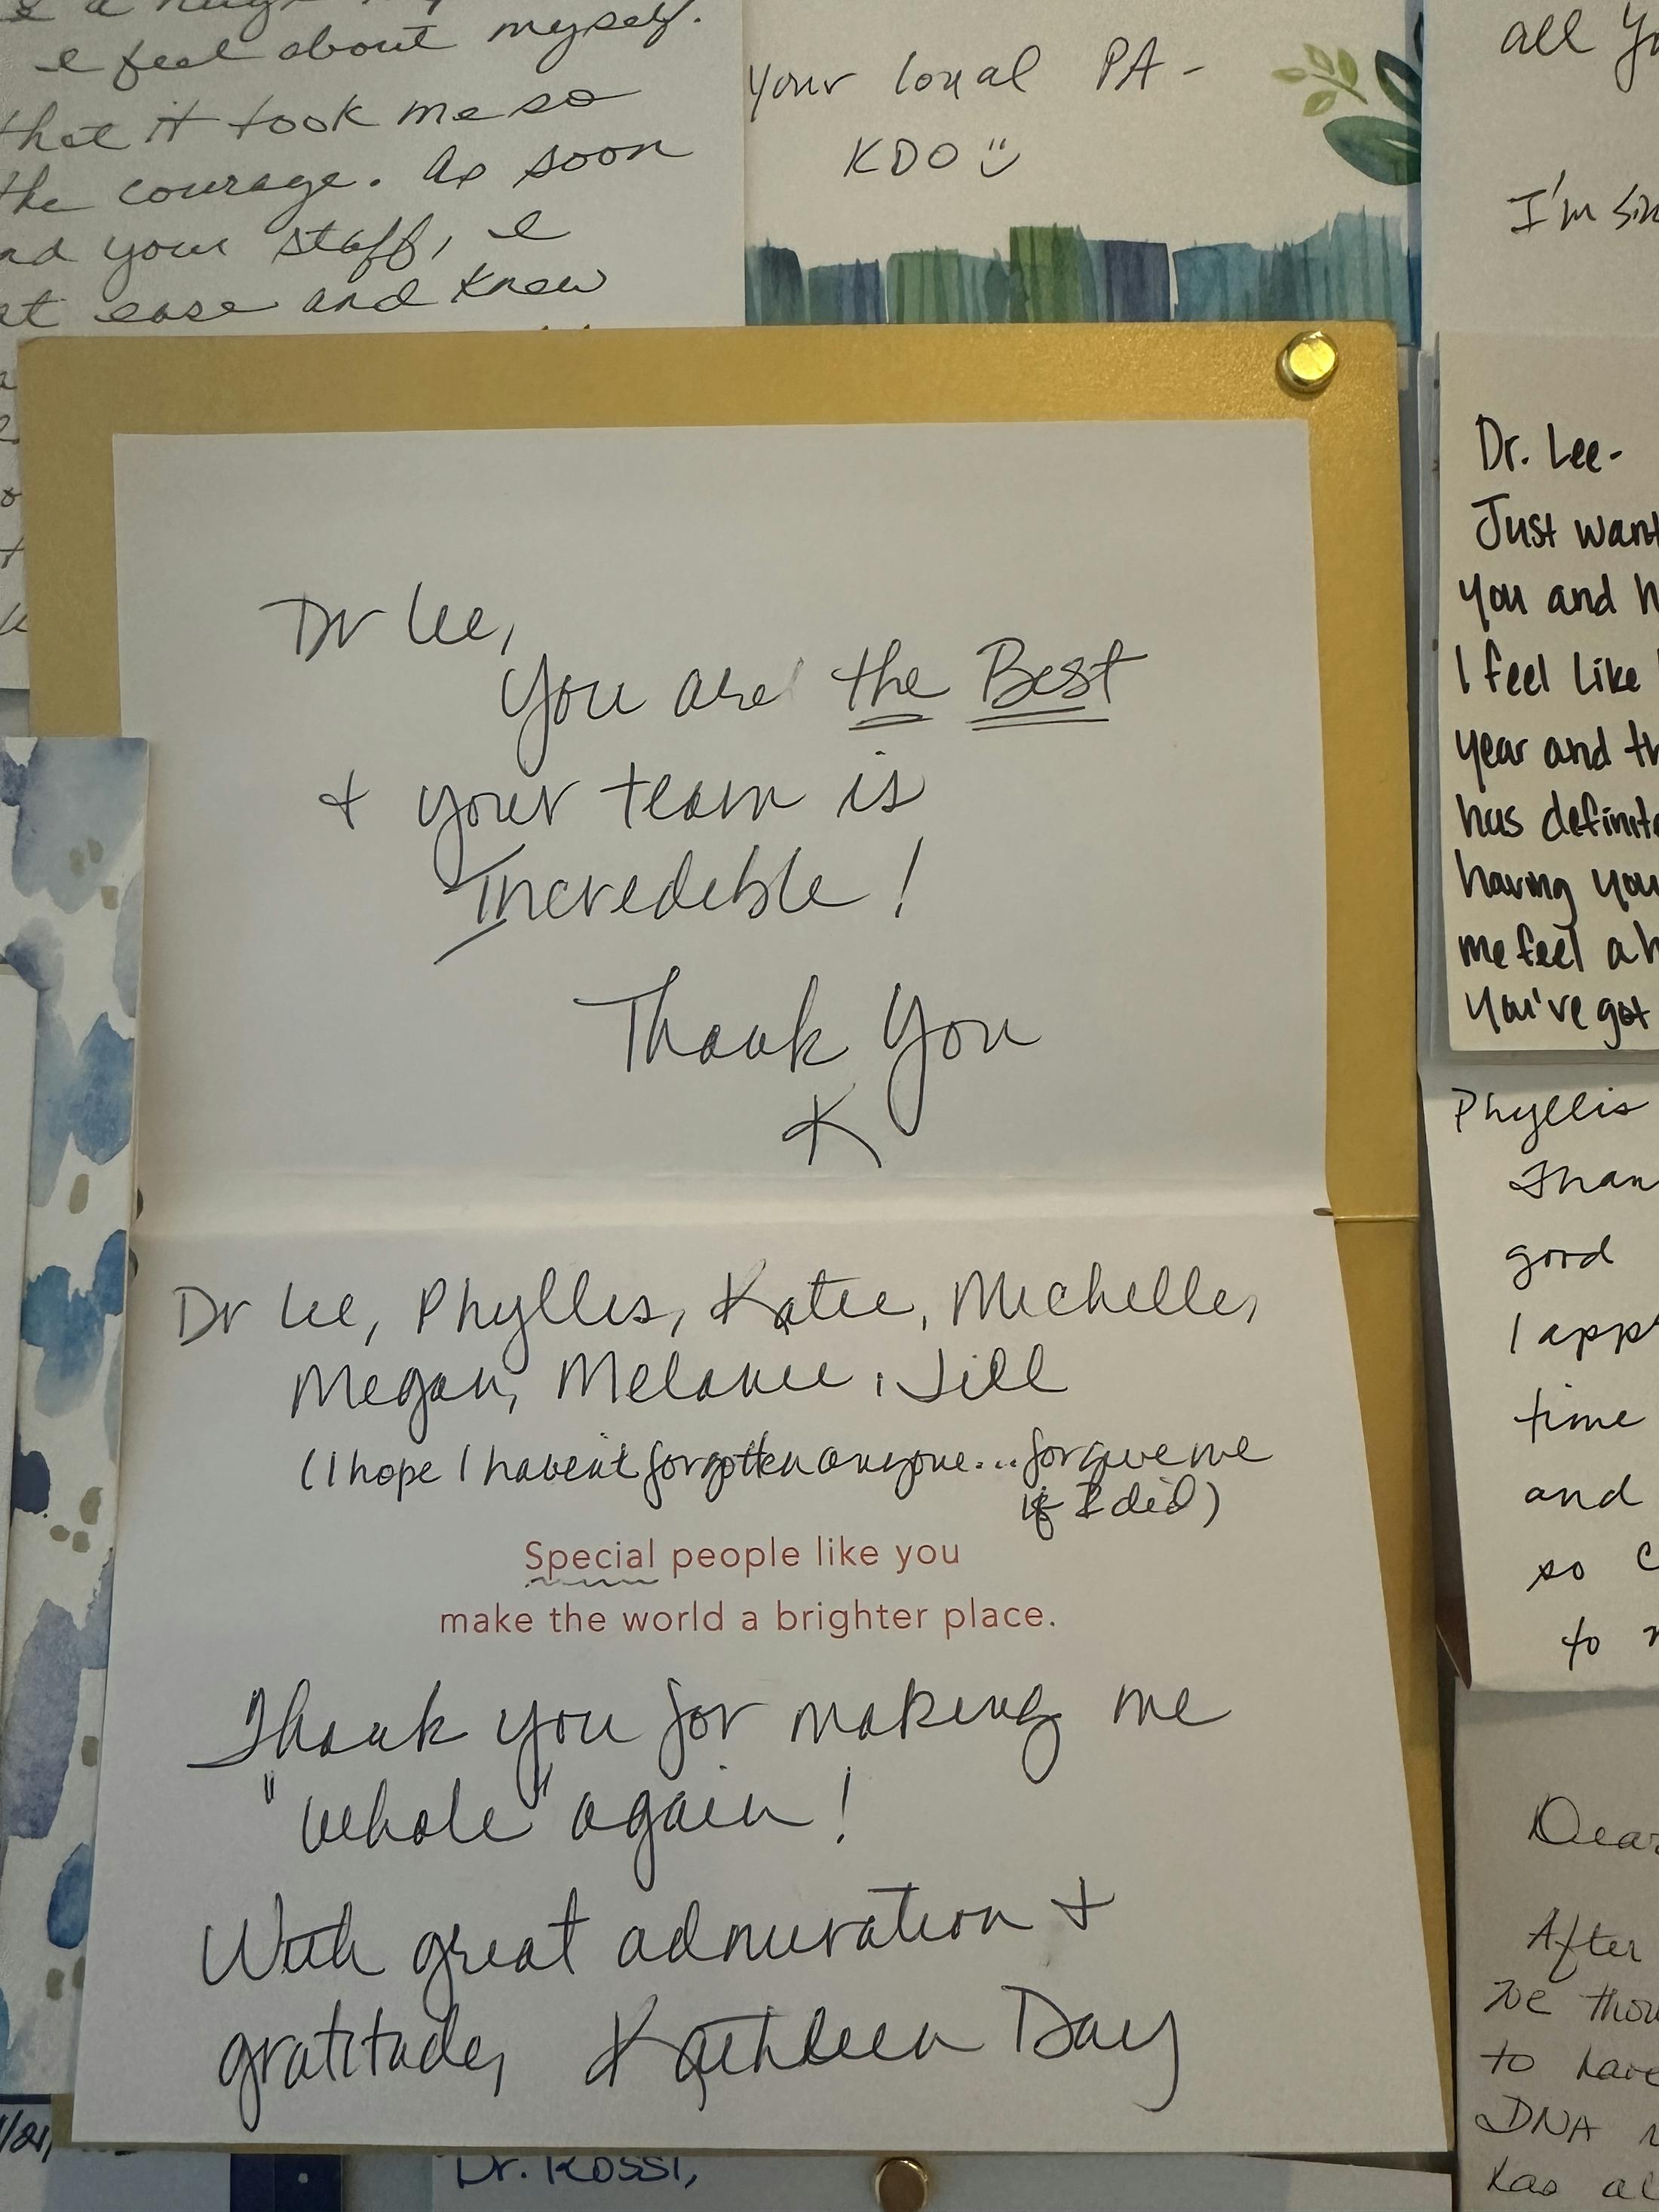 I feel about myself.
that it took me so
the courage. As soon
your staff, I
at ease and knew
your loyal PA -
KDO
all
I'm
Dr Lee,
You are the Best
+ your team is
Incredible!
Thank You
K
Dr Lee, Phyllis, Katie, Michelle,
Megan, Melanie, Jill
(I hope I haven't forgotten anyone... forgive me
if I did)
Special people like you
make the world a brighter place.
Thank you for making me
"whole" again!
With great admiration +
gratitude, Kathleen Day
Dr. Lee-
Just want
you and
I feel like
year and
has
having you
me feel a
You've got
Phyllis
good
I
time
and
so
to
Dear
After
to have
DNA
has
Dr. Rossi,